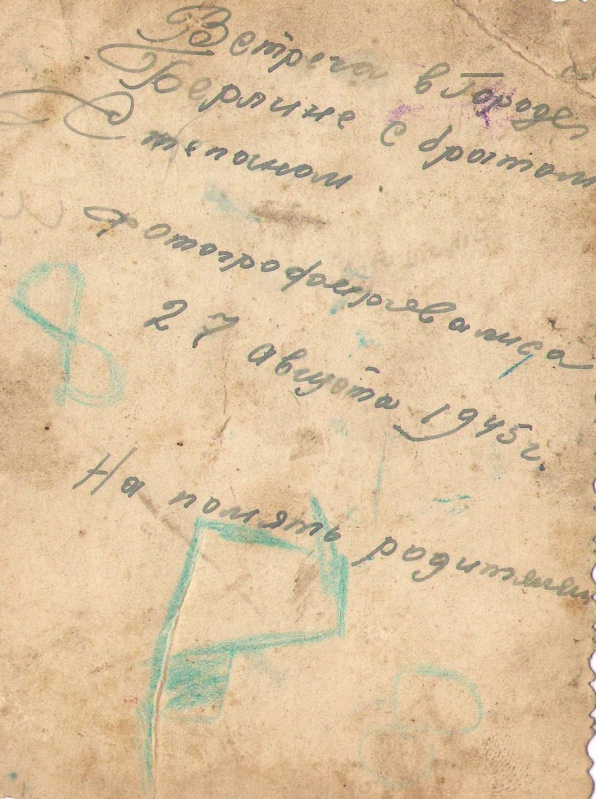 Встреча в городе
Берлине с братом
Степаном
фотографировалиса
27 августа 1945г.
На помять родителям
8